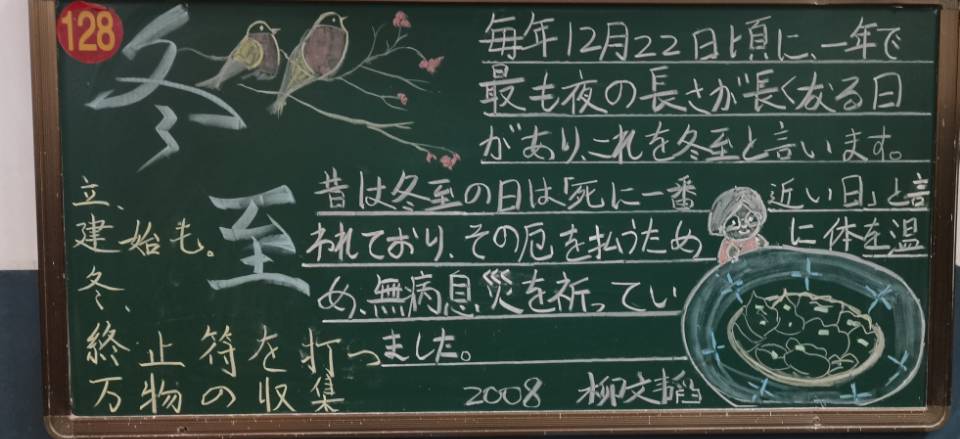 128
冬
至
毎年12月22日頃に、一年で
最も夜の長さが長くなる日
があり、これを冬至と言います。
昔は冬至の日は「死に一番近い日」と言
われており、その厄を払うために体を温
め、無病息災を祈ってい
ました。
立、
建始も。
冬、
終止符を打つ
万物の収集
2008 柳文韜